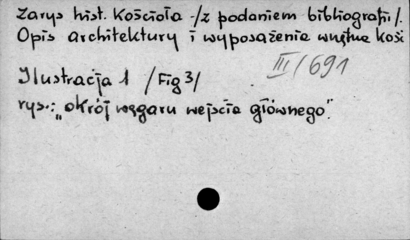 Zarys hist. Kościoła -/z podaniem bibliografii/.
Opis architektury i wyposażenia wnętrza kośc
III/691
Ilustracja 1 /Fig 3/
rys.: "okrój węgaru wejścia głównego".